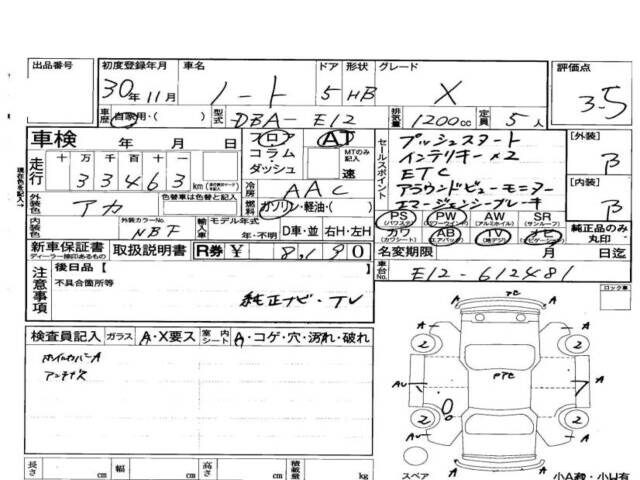 出品番号 初度登録年月 車名 ドア 形状 グレード 評価点
30年11月 ノート 5 HB X 3.5
車歴 自家用・( ) 型式 DBA-E12 排気量 1200cc 定員 5人
車検 年 月 日 フロア AT セールスポイント プッシュスタート [外装]
コラム MTのみ記入 インテリキー×2 B
走行 十 万 千 百 十 一 ダッシュ 速 ETC
33463 km 冷房 AAC アラウンドビューモニター [内装]
外装色 アカ 色替車は色替と記入 燃料 ガソリン・軽油・( ) エマージェンシーブレーキ B
現在色を記入
内装色 外装カラーNo. NBF 輸入車 モデル年式 年・不明 D車・並 右H・左H
PS (パワステ) PW (パワーウインド) AW (アルミホイル) SR (サンルーフ) 純正品のみ丸印
カワ (カワシート) AB (エアバック) TV (地デジ) ナビ (ナビゲーション)
新車保証書 取扱説明書 R券 ¥ 8,190 名変期限 月 日迄
ディーラー捺印あるもの
注意事項 後日品【 車台No. E12-612481
不具合箇所等 ロック車
純正ナビ・TV
検査員記入 ガラス A・X要ス 室内シート A・コゲ・穴・汚れ・破れ
ホイルカバーA
A A
2 2
AU A
2 2
A A
スペア 小A数・小U有
長さ cm 幅 cm 高さ cm 積載量 kg